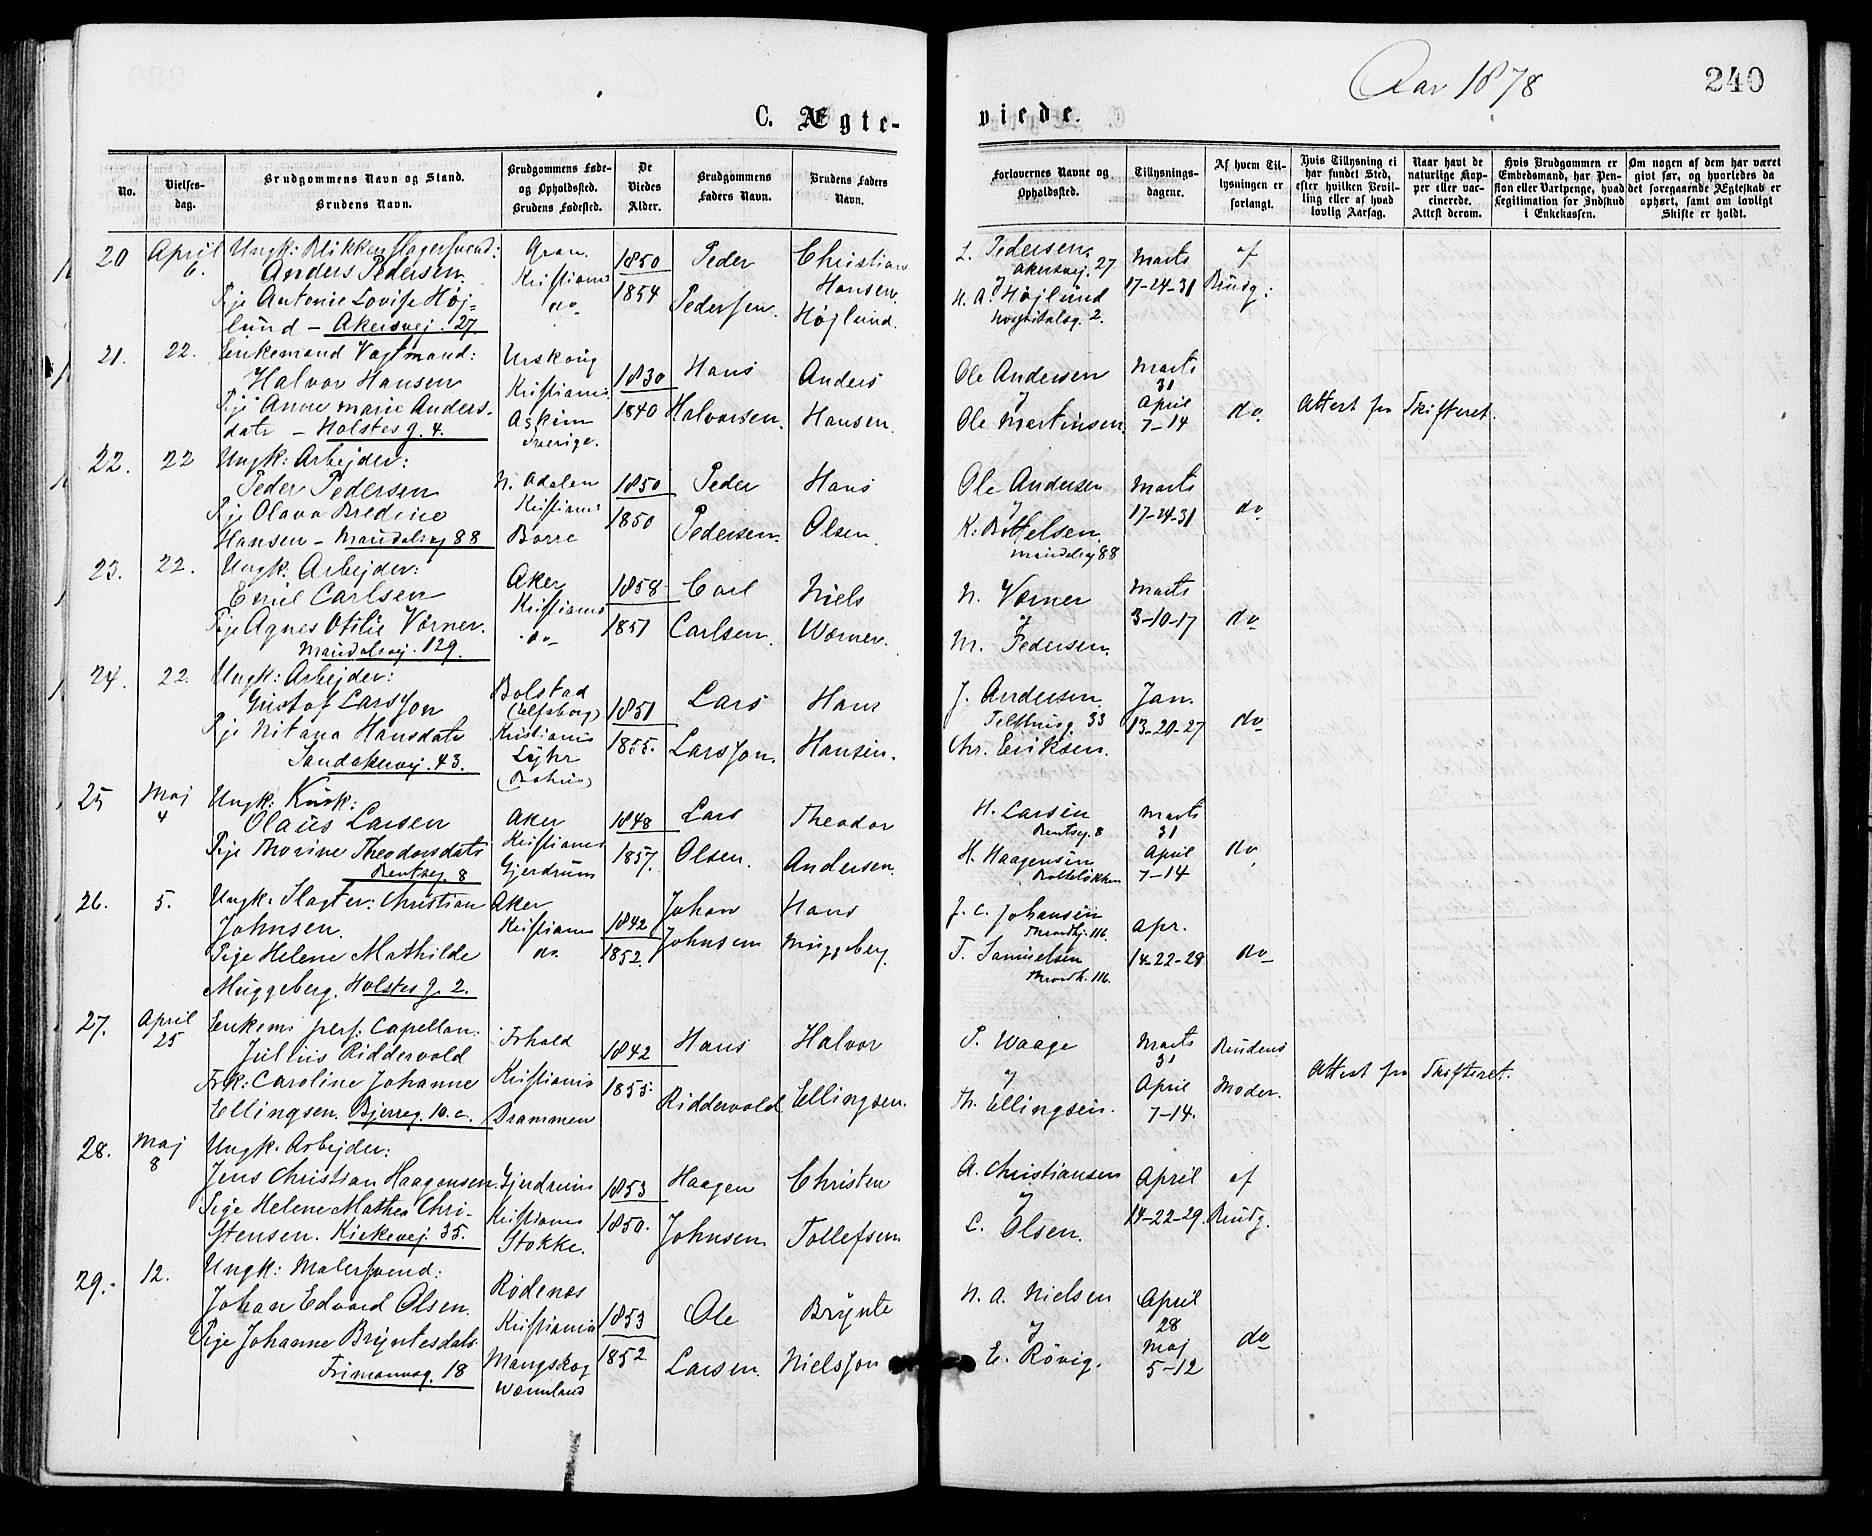 Aar 1878
240
C. Ægte- viede.
No.
Vielses-
dag.
Brudgommens Navn og Stand.
Brudens Navn.
Brudgommens Føde-
og Opholdssted.
Brudens Fødested.
De
Viedes
Alder.
Brudgommens
Faders Navn.
Brudens Faders
Navn.
Forlovernes Navne og
Opholdssted.
Tillysnings-
dagene.
Af hvem Til-
lysningen er
forlangt.
Hvis Tillysning ei
har fundet Sted,
efter hvilken Bevil-
ling eller af hvad
lovlig Aarsag.
Naar havt de
naturlige Kop-
per eller vac-
cinerede.
Attest derom.
Hvis Brudgommen er
Embedsmand, har Pen-
sion eller Vartpenge, hvad
Legitimation for Indskud
i Enkekassen.
Om nogen af dem har været
givt før, og hvorledes da
det foregaaende Ægteskab er
ophørt, samt om lovligt
Skifte er holdt.
20
April
6.
Ungk: Blikkenslagersvend:
Anders Pedersen.
Pige Antonie Lovise Høj-
lund - Akersvej. 27.
Gran.
Kristiania
do
1850
1854
Peder
Pedersen.
Christian
Hansen
Højlund.
L. Pedersen
Akersvej. 27
H. A. Højlund
Hospitalsg. 2.
Marts
17-24-31
af
Brudg:
21.
22.
Enkemand Vagtmand:
Halvor Hansen
Pige Anne Marie Anders-
datr - Holstes g. 4.
Urskoug
Kristiania
Askim
Sverige.
1830
1840
Hans
Halvorsen.
Anders
Hansen.
Ole Andersen
Ole Martinsen.
Marts
31
April
7-14
do
Attest fra Skifteret.
22.
22
Ungk: Arbejder:
Peder Pedersen
Pige Olava Bredine
Hansen - Maridalsvej 88
N. Adalen
Kristiania
Borre
1850
1850
Peder
Pedersen.
Hans
Olsen.
Ole Andersen
K. Bottelsen.
Maridalsvej 88
Marts
17-24-31
do
23.
22.
Ungk. Arbejder:
Emil Carlsen
Pige Agnes Otilie Värner.
Maridalsvej. 129.
Aker
Kristiania
do
1858
1851
Carl
Carlsen.
Niels
Wørner.
N. Værner
M. Pedersen.
Marts
3-10-17
do
24.
22.
Ungk: Arbejder:
Gustaf Larsson
Pige Nitana Hansdatr
Sandakervej. 43.
Bolstad
(Elfsborg)
Kristiania
1851
1855.
Lars
Larsson.
Hans
Hansen.
J. Andersen
33
Chr. Eriksen.
Jan.
13-20-27
do
25
Maj
4
Ungk: Kusk:
Olaus Larsen
Pige Thorine Theodorsdatr
8
Aker
Kristiania
Gjerdrum
1848
1857.
Lars
Olsen.
Theodor
Andersen.
H. Larsen
8
H. Haagensen
Marts
31
April
7-14
do
26.
5.
Ungk. Slagter: Christian
Johnsen.
Pige Helene Mathilde
Muggeberg. Holstes g. 2.
Aker
Kristiania
do.
1842
1852.
Johan
Johnsen
Hans
Muggeberg
J. C. Johansen
Throndhj. 116.
T. Samuelsen
Throndh. 116.
Apr.
14-22-28
do
27.
April
25
Enkem: pers: Capellan:
Julius Riddervold
Frk: Caroline Johanne
Ellingsen. Bjerreg. 10. c.
Kristiania
Drammen
1842
1855:
Hans
Riddervold
Halvor
Ellingsen.
P. Waage
Th. Ellingsen.
Marts
31
April
7-14.
Brudens
Moder.
Attest fra Skifteret.
28.
Maj
8
Ungk. Arbejder:
Jens Christian Haagensen.
Pige Helene Mathea Chri-
stensen. Kirkevej. 35.
Gjerdrum
Kristiania
Stokke.
1853
1850.
Haagen
Johnsen.
Christen
Tollefsen
A. Christiansen
C. Olsen.
April
14-22-29.
af
Brudg.
29.
12.
Ungk: Malersvend:
Johan Edvard Olsen.
Pige Johanne Bryntesdatr.
Frimannsg. 18
Rødenes
Kristiania
Mangskog
Wærmland
1853
1852
Ole
Larsen.
Brynte
Nielsson
N. A. Nielsen
E. Røvig.
April
28
Maj
5-12
do